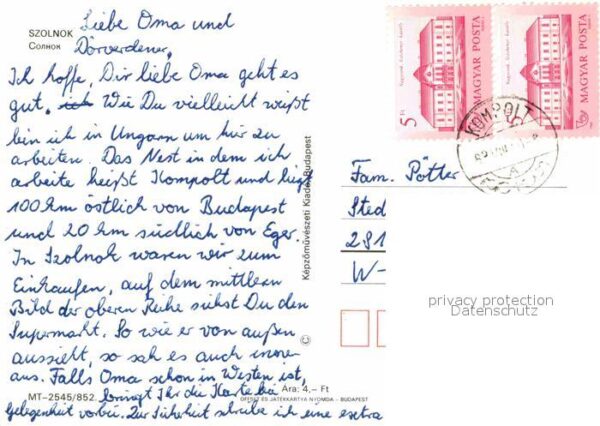 SZOLNOK
Сольнок
Liebe Oma und
Dörverdener,
Ich hoffe, Dir liebe Oma geht es
gut. Wie Du vielleicht weißt
bin ich in Ungarn um hier zu
arbeiten. Das Nest in dem ich
arbeite heißt Kompolt und liegt
100 km östlich von Budapest
und 20 km südlich von Eger.
In Szolnok waren wir zum
Einkaufen, auf dem mittlern
Bild der oberen Reihe siehst Du den
Supermarkt. So wie er von außen
aussieht, so sah es auch innen
aus. Falls Oma schon in Westen ist,
bringt Ihr die Karte bei
Gelegenheit vorbei. Zur Sicherheit schreibe ich eine extra
MT-2545/852.
Ára: 4,- Ft
OFFSET ÉS JÁTÉKKÁRTYA NYOMDA - BUDAPEST
Képzőművészeti Kiadó, Budapest
5 Ft
MAGYAR POSTA
5
MAGYAR POSTA
KOMPOLT
A
Fam. Pötter
Sted
281
W-
privacy protection
Datenschutz